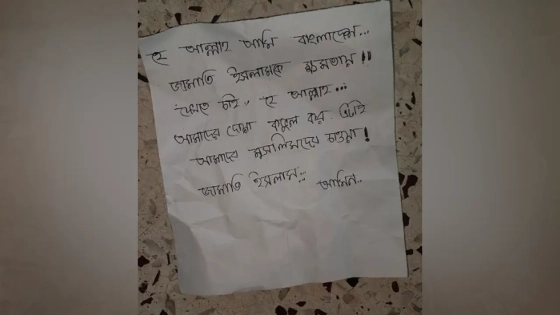 হে আল্লাহ আমি বাংলাদেশে...
জামাতি ইসলামকে ক্ষমতায়!!
দেখতে চাই.. হে আল্লাহ...
আমাদের দোয়া কবুল কর. এটাই
আমাদের মুসলিমদের চাওয়া!
জামাতি ইসলাম... আমিন..